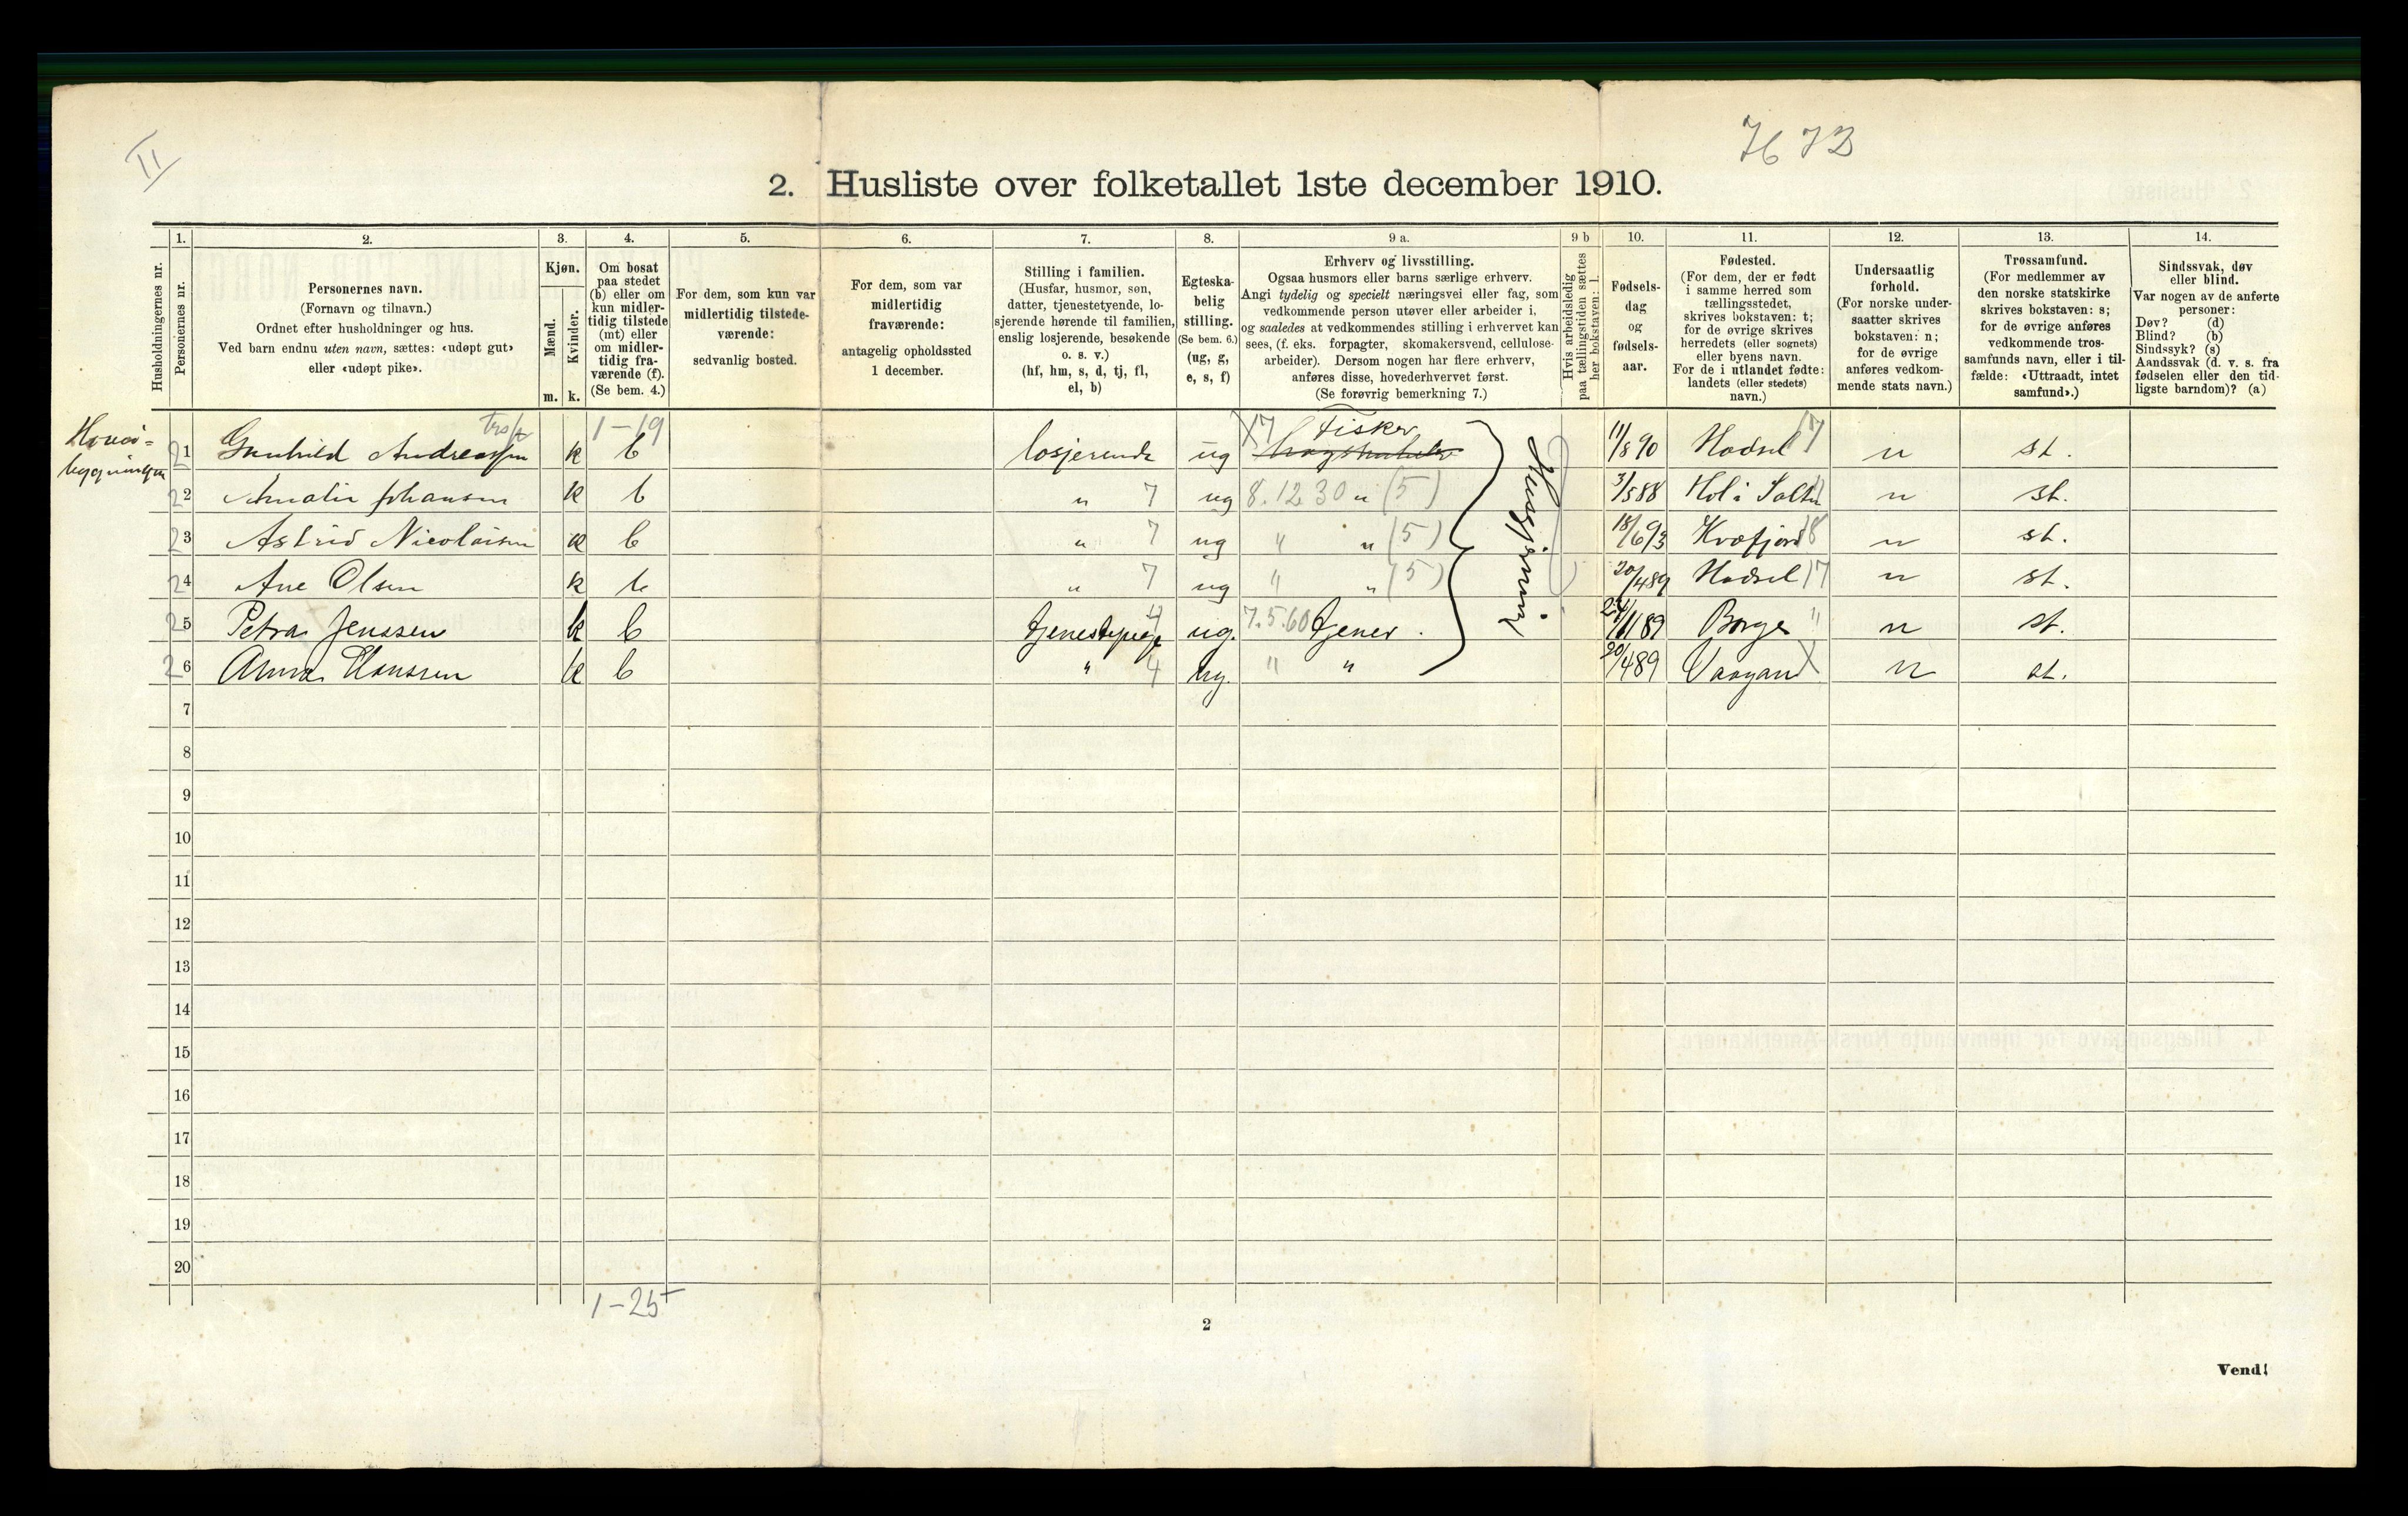 II
H 72
2. Husliste over folketallet 1ste december 1910.
Husholdningernes nr.
1. Personernes nr.
2. Personernes navn.
(Fornavn og tilnavn.)
Ordnet efter husholdninger og hus.
Ved barn endnu uten navn, sættes: «udøpt gut»
eller «udøpt pike».
3. Kjøn.
Mænd. Kvinder.
m. k.
4. Om bosat
paa stedet
(b) eller om
kun midler-
tidig tilstede
(mt) eller
om midler-
tidig fra-
værende (f).
(Se bem. 4.)
5. For dem, som kun var
midlertidig tilstede-
værende:
sedvanlig bosted.
6. For dem, som var
midlertidig
fraværende:
antagelig opholdssted
1 december.
7. Stilling i familien.
(Husfar, husmor, søn,
datter, tjenestetyende, lo-
sjerende hørende til familien,
enslig losjerende, besøkende
o. s. v.)
(hf, hm, s, d, tj, fl,
el, b)
8. Egteska-
belig
stilling.
(Se bem. 6.)
(ug, g,
e, s, f)
9 a. Erhverv og livsstilling.
Ogsaa husmors eller barns særlige erhverv.
Angi tydelig og specielt næringsvei eller fag, som
vedkommende person utøver eller arbeider i,
og saaledes at vedkommendes stilling i erhvervet kan
sees, (f. eks. forpagter, skomakersvend, cellulose-
arbeider). Dersom nogen har flere erhverv,
anføres disse, hovederhvervet først.
(Se forøvrig bemerkning 7.)
9 b Hvis arbeidsledig
paa tællingstiden sættes
her bokstaven: l.
10. Fødsels-
dag
og
fødsels-
aar.
11. Fødested.
(For dem, der er født
i samme herred som
tællingsstedet,
skrives bokstaven: t;
for de øvrige skrives
herredets (eller sognets)
eller byens navn.
For de i utlandet fødte:
landets (eller stedets)
navn.)
12. Undersaatlig
forhold.
(For norske under-
saatter skrives
bokstaven: n;
for de øvrige
anføres vedkom-
mende stats navn.)
13. Trossamfund.
(For medlemmer av
den norske statskirke
skrives bokstaven: s;
for de øvrige anføres
vedkommende tros-
samfunds navn, eller i til-
fælde: «Uttraadt, intet
samfund».)
14. Sindssvak, døv
eller blind.
Var nogen av de anførte
personer:
Døv? (d)
Blind? (b)
Sindssyk? (s)
Aandssvak (d. v. s. fra
fødselen eller den tid-
ligste barndom)? (a)
1-19
bygningen
21 Gunhild Andreassen k b losjerende ug Fisker 11/8 90 Hadsel 17 n st.
22 Amalie Johansen k b " 7 ug 8.12.30 " (5) 3/5 88 Hol i Salten n st.
23 Astrid Nicolaisen k b " 7 ug " " (5) 18/6 93 Kvæfjord 18 n st.
24 Ane Olsen k b " 7 ug " " (5) 20/4 89 Hadsel 17 n st.
25 Petra Jenssen k b tjenestepige 4 ug. 7.5.60 tjener. Borge " n st.
26 Anna Hanssen k b " 4 ug. " " 20/4 89 Vaagan X n st.
Husgjerning
7
8
9
10
11
12
13
14
15
16
17
18
19
20
1-25
2
Vend!